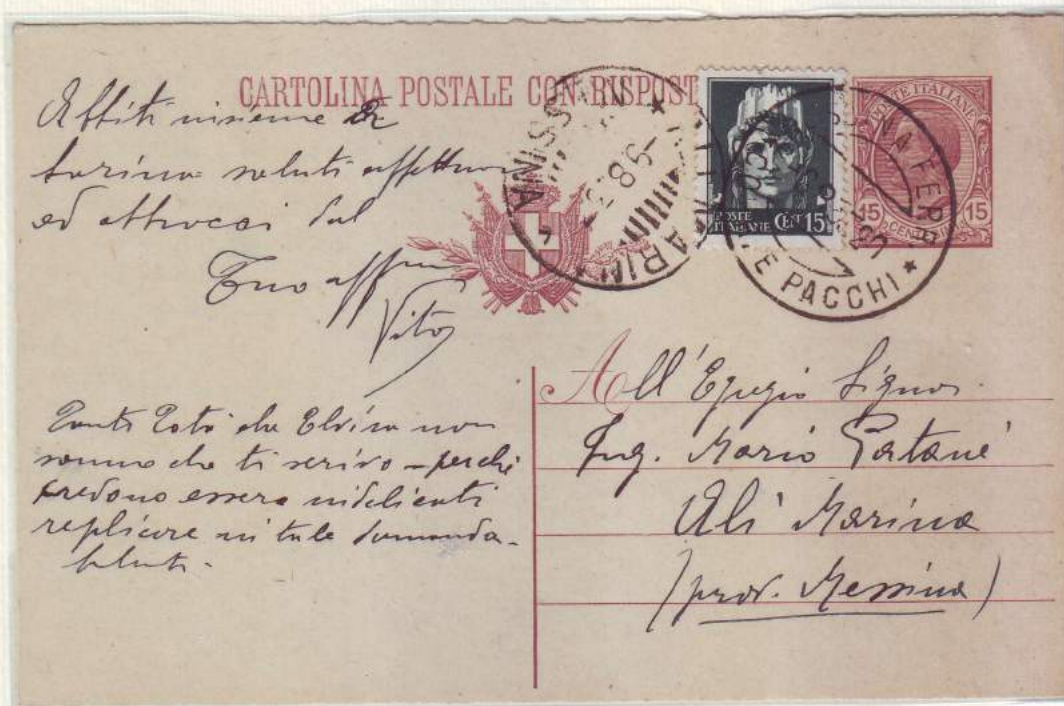 CARTOLINA POSTALE CON RISPOST
insieme
saluti
ed abbracci dal
Tuo aff
Vito
Tanto Totò che Elvira non
sanno che ti scrivo - perchè
credono essere indelicati
replicare in tale domanda -
Saluti -
POSTE
ITALIANE CENT 15
POSTE ITALIANE
15 15
CENTESIMI
PACCHI
All'Egregio Signor
Ing. Mario Patanè
Alì Marina
(prov. Messina)